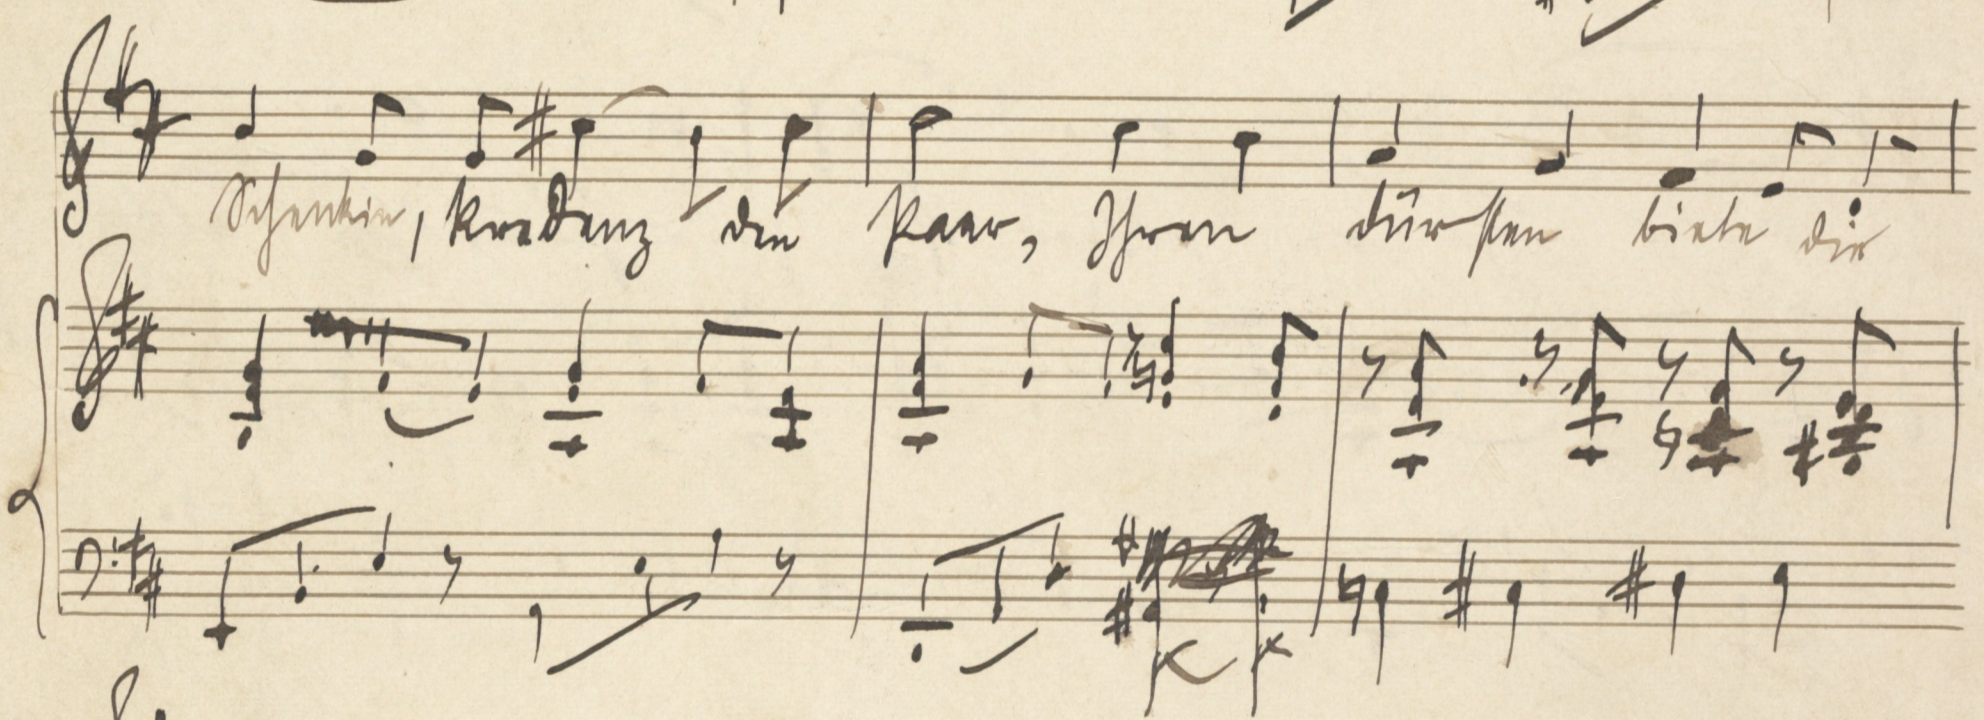 Schenkin, kredenz dem Paar, Ihren Durst biete die